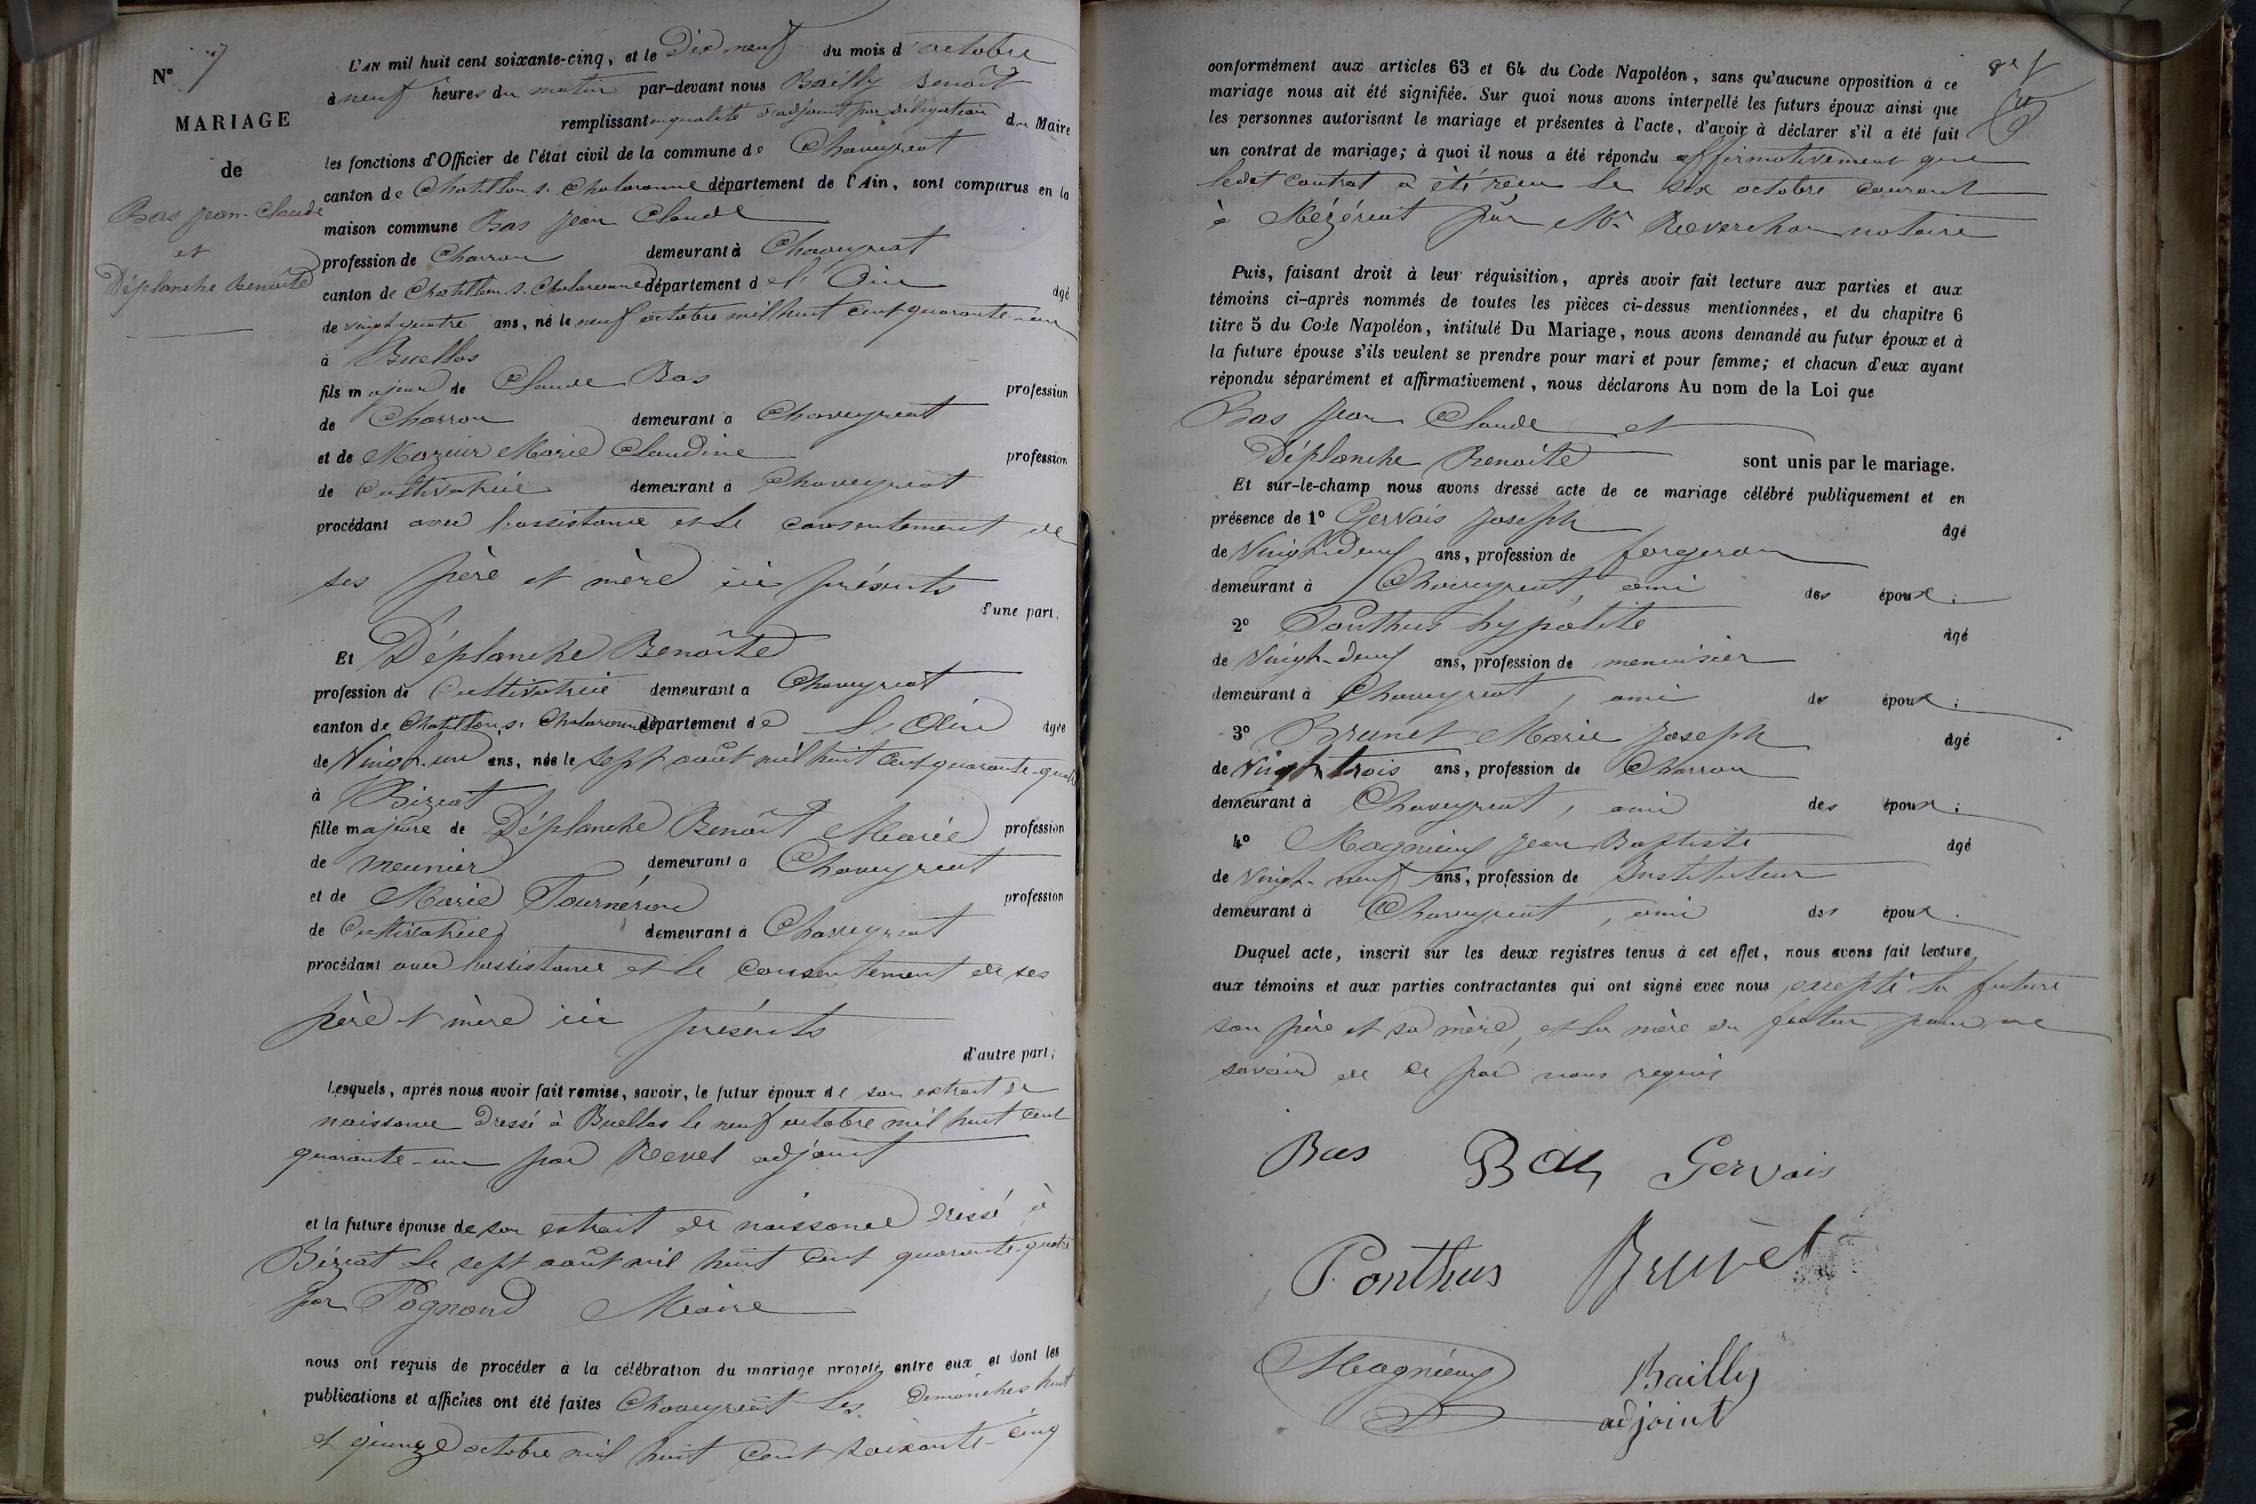 N° 7
MARIAGE
de
Bas Jean-Claude
et
Déplanche Benoîte
L'AN mil huit cent soixante-cinq, et le Dix neuf du mois d'octobre
à neuf heures du matin par-devant nous Bailly Benoît
remplissant en qualité d'adjoint par délégation du Maire
les fonctions d'Officier de l'état civil de la commune de Chaveyriat
canton de Chatillon s. Chalaronne département de l'Ain, sont comparus en la
maison commune Bas Jean Claude
profession de Charron demeurant à Chaveyriat
canton de Chatillon s. Chalaronne département de l'Ain âgé
de vingt quatre ans, né le neuf octobre mil huit cent quarante-un
à Buellas
fils majeur de Claude Bas profession
de Charron demeurant a Chaveyriat
et de Mazuir Marie Claudine profession
de Cultivatrice demeurant à Chaveyriat
procédant avec l'assistance et le consentement de
ses père et mère ici présents
d'une part;
Et Déplanche Benoîte
profession de Cultivatrice demeurant a Chaveyriat
canton de Chatillon s. Chalaronne département de l'Ain âgée
de Vingt-un ans, née le sept août mil huit cent quarante-quatre
à Biziat
fille majeure de Déplanche Benoît Marie profession
de meunier demeurant a Chaveyriat
et de Marie Tournéron profession
de Cultivatrice demeurant à Chaveyriat
procédant avec l'assistance et le consentement de ses
père et mère ici présents
d'autre part;
Lesquels, après nous avoir fait remise, savoir, le futur époux de son extrait de
naissance dressé à Buellas le neuf octobre mil huit cent
quarante-un par Revel adjoint
et la future épouse de son extrait de naissance dressé à
Biziat le sept août mil huit cent quarante-quatre
par Pognond Maire
nous ont requis de procéder à la célébration du mariage projeté entre eux et dont les
publications et affiches ont été faites Chaveyriat les dimanches huit
et quinze octobre mil huit cent soixante-cinq
conformément aux articles 63 et 64 du Code Napoléon, sans qu'aucune opposition à ce
mariage nous ait été signifiée. Sur quoi nous avons interpellé les futurs époux ainsi que
les personnes autorisant le mariage et présentes à l'acte, d'avoir à déclarer s'il a été fait
un contrat de mariage; à quoi il nous a été répondu affirmativement que
ledit contrat a été reçu le six octobre courant
à Mézériat par Mr. Reverchon notaire
Puis, faisant droit à leur réquisition, après avoir fait lecture aux parties et aux
témoins ci-après nommés de toutes les pièces ci-dessus mentionnées, et du chapitre 6
titre 5 du Code Napoléon, intitulé Du Mariage, nous avons demandé au futur époux et à
la future épouse s'ils veulent se prendre pour mari et pour femme; et chacun d'eux ayant
répondu séparément et affirmativement, nous déclarons Au nom de la Loi que
Bas Jean Claude et
Déplanche Benoîte sont unis par le mariage.
Et sur-le-champ nous avons dressé acte de ce mariage célébré publiquement et en
présence de 1° Gervais Joseph âgé
de Vingt-deux ans, profession de forgeron
demeurant à Chaveyriat, ami des époux;
2° Ponthus hypolite âgé
de Vingt-deux ans, profession de menuisier
demeurant à Chaveyriat, ami des époux;
3° Brunet Marie Joseph âgé
de Vingt trois ans, profession de Charron
demeurant à Chaveyriat, ami des époux;
4° Magnieux Jean Baptiste âgé
de Vingt-neuf ans, profession de Instituteur
demeurant à Chaveyriat, ami des époux.
Duquel acte, inscrit sur les deux registres tenus à cet effet, nous avons fait lecture
aux témoins et aux parties contractantes qui ont signé avec nous, excepté la future
son père et sa mère, et la mère du futur pour ne
savoir de ce par nous requis
Bas Bas Gervais
Ponthus Brunet
Magnieux Bailly
adjoint